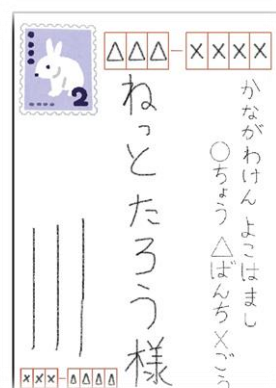 △△△-××××
かながわけん よこはまし
○ちょう △ばんち×ごう
ねっと たろう様
2
×××-△△△△